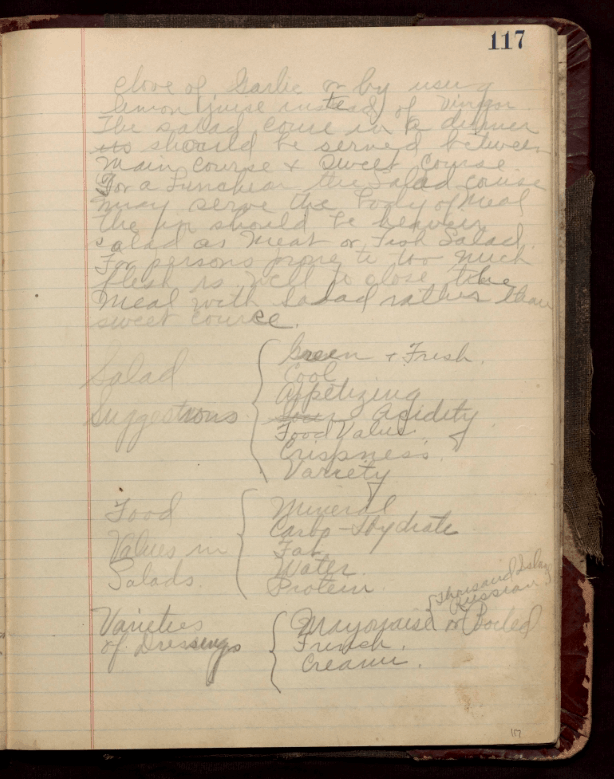 117
clove of Garlic or by using
lemon juise instead of Vinger
The salad course in a dinner
is should be served between
Main Course + Sweet Course
For a Luncheon the Salad course
may serve the Body of Meal
the should be heavier
salad as Meat or Fish Salad.
For persons prone to too much
flesh is well to close the
Meal with Salad rather than
sweet cource.
Salad
Suggestions
Green + Fresh.
Cool
Appetizing
Acidity
Food Value.
Crispness.
Variety
Food
Values in
Salads.
Mineral
Carbo-Hydrate
Fat
Water.
Protein.
Varieties
of Dressings
Mayonaise or Boiled
Thousand Isle
Russian
French.
Creami.
117